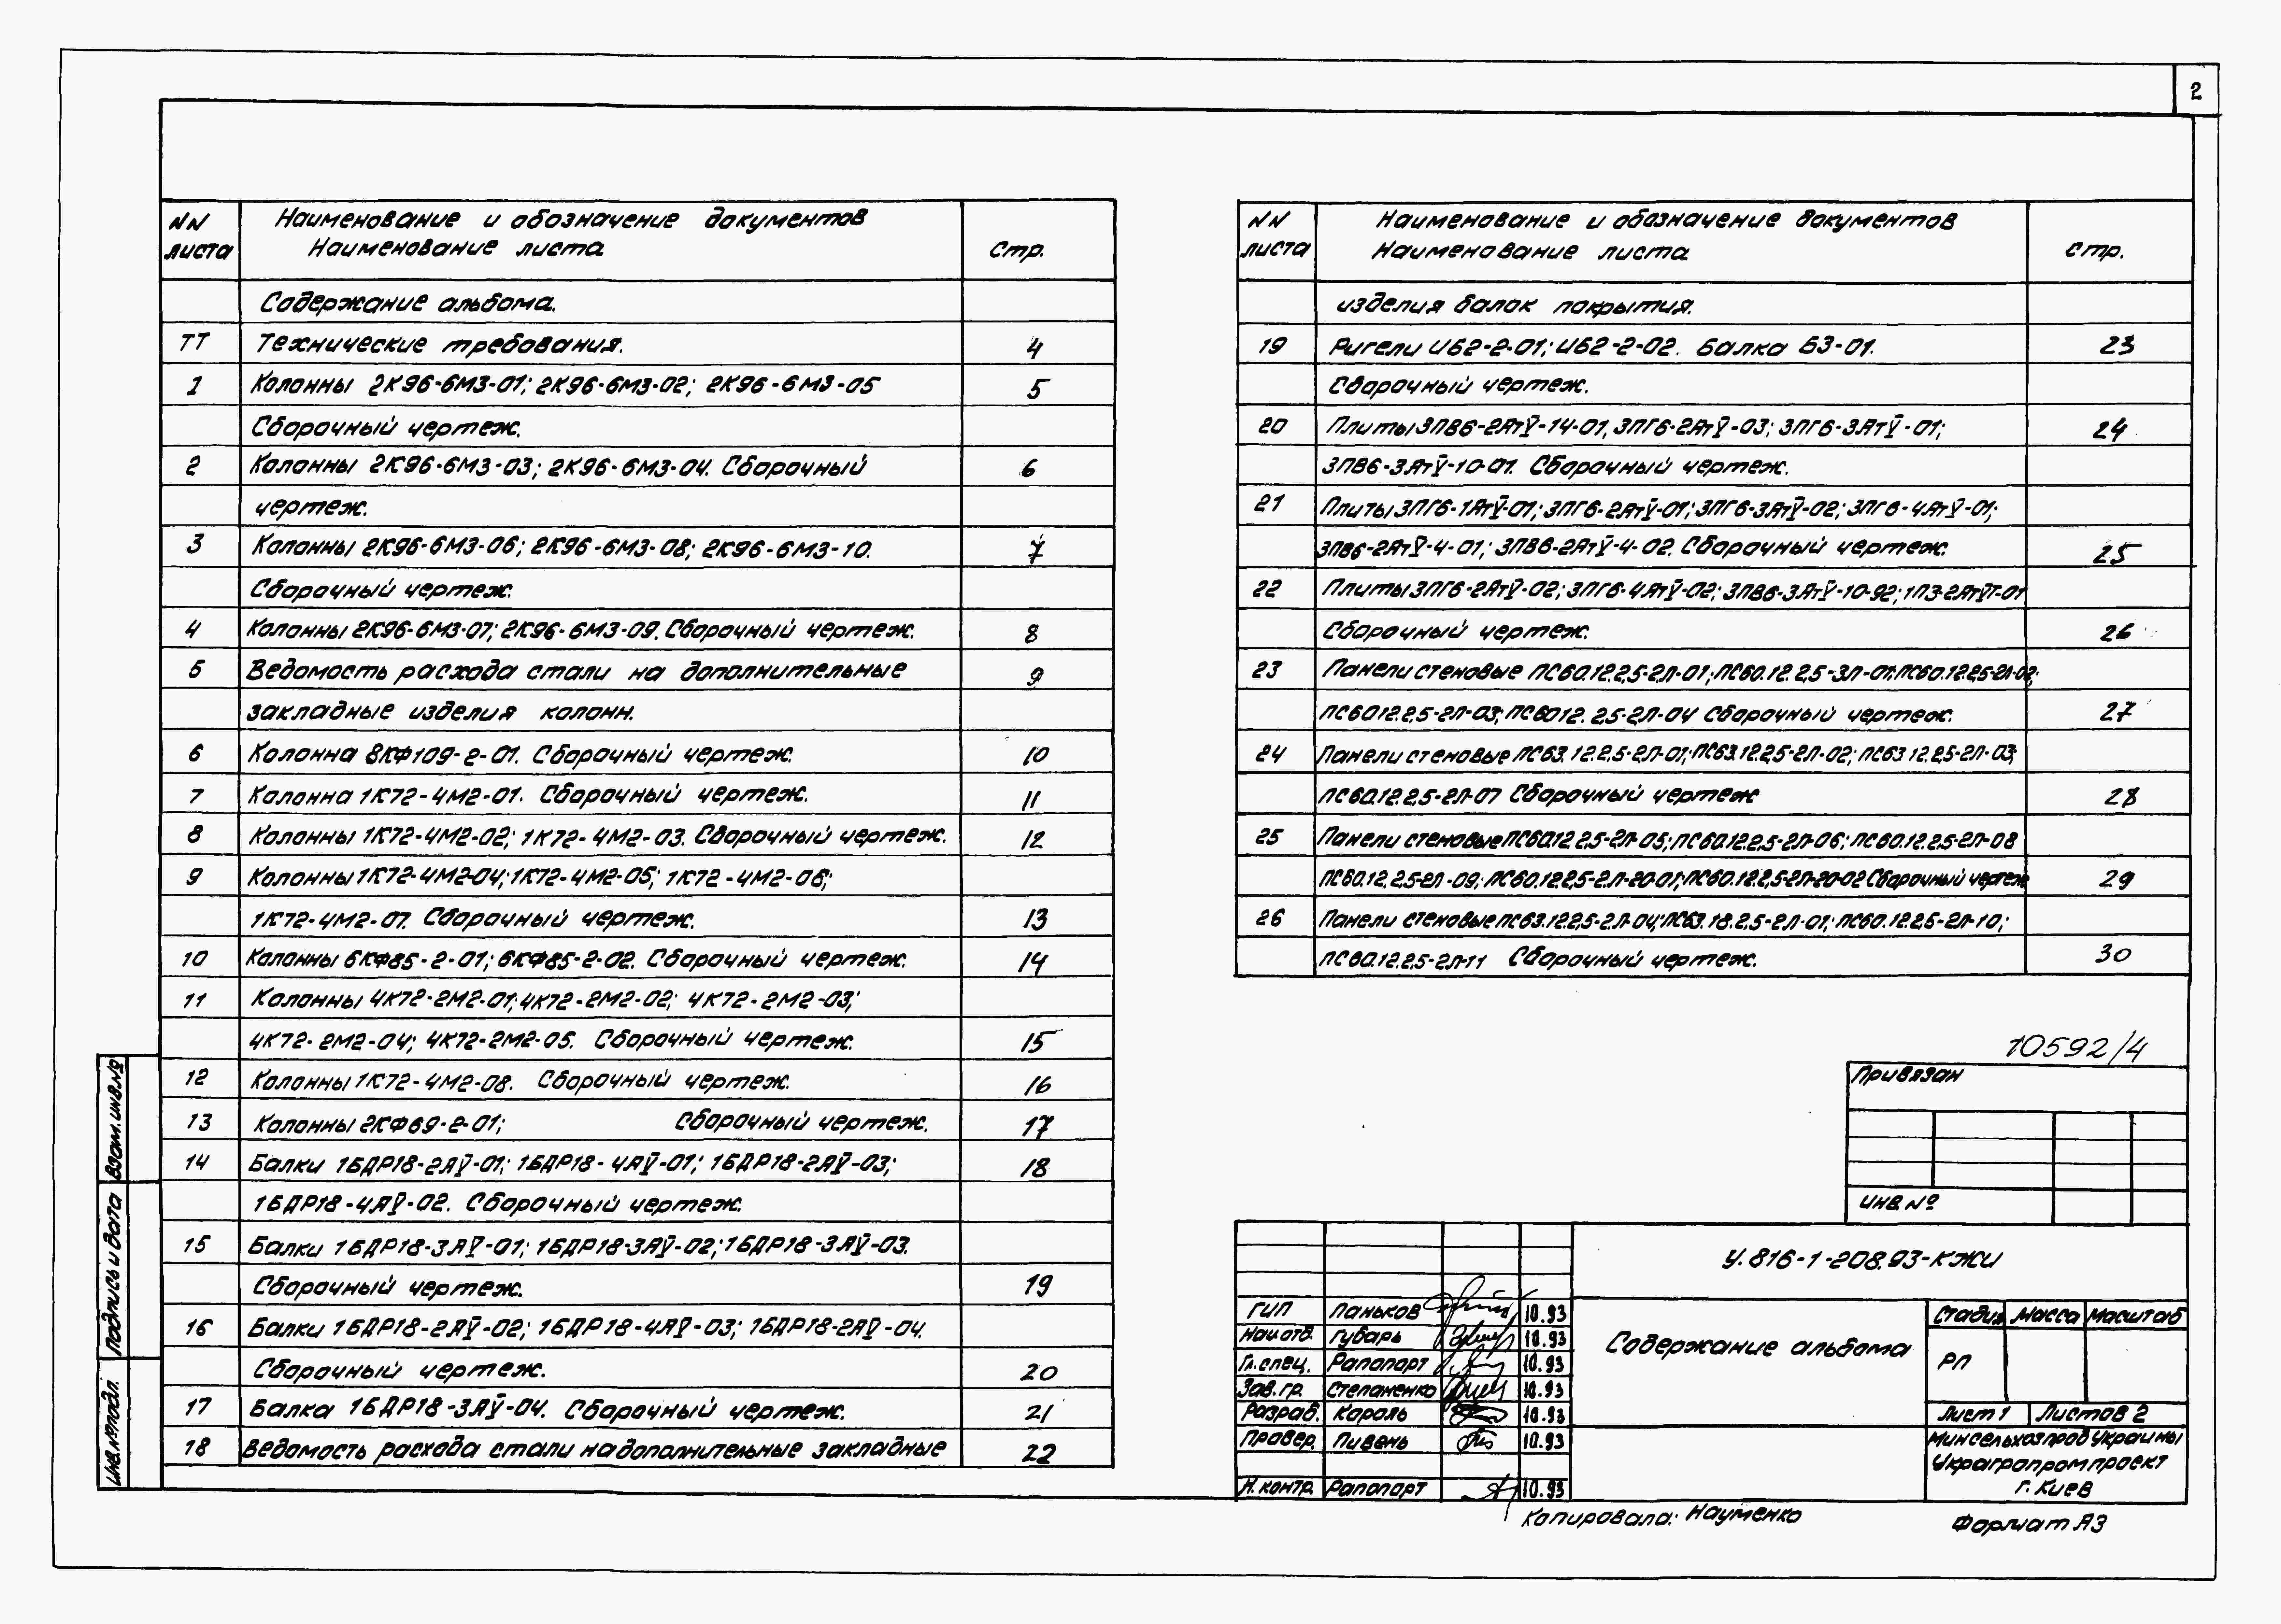 2
NN листа Наименование и обозначение документов Наименование листа Стр.
Содержание альбома.
ТТ Технические требования. 4
1 Колонны 2К96-6М3-01; 2К96-6М3-02; 2К96-6М3-05 5
Сборочный чертеж.
2 Колонны 2К96-6М3-03; 2К96-6М3-04. Сборочный 6
чертеж.
3 Колонны 2К96-6М3-06; 2К96-6М3-08; 2К96-6М3-10. 7
Сборочный чертеж.
4 Колонны 2К96-6М3-07; 2К96-6М3-09. Сборочный чертеж. 8
5 Ведомость расхода стали на дополнительные 9
закладные изделия колонн.
6 Колонна 8КФ109-2-01. Сборочный чертеж. 10
7 Колонна 1К72-4М2-01. Сборочный чертеж. 11
8 Колонны 1К72-4М2-02; 1К72-4М2-03. Сборочный чертеж. 12
9 Колонны 1К72-4М2-04; 1К72-4М2-05; 1К72-4М2-06;
1К72-4М2-07. Сборочный чертеж. 13
10 Колонны 6КФ85-2-01; 6КФ85-2-02. Сборочный чертеж. 14
11 Колонны 4К72-2М2-01; 4К72-2М2-02; 4К72-2М2-03;
4К72-2М2-04; 4К72-2М2-05. Сборочный чертеж. 15
12 Колонны 1К72-4М2-08. Сборочный чертеж. 16
13 Колонны 2КФ69-2-01; Сборочный чертеж. 17
14 Балки 1БДР18-2АV-01; 1БДР18-4АV-01; 1БДР18-2АV-03; 18
1БДР18-4АV-02. Сборочный чертеж.
15 Балки 1БДР18-3АV-01; 1БДР18-3АV-02; 1БДР18-3АV-03.
Сборочный чертеж. 19
16 Балки 1БДР18-2АV-02; 1БДР18-4АV-03; 1БДР18-2АV-04.
Сборочный чертеж. 20
17 Балка 1БДР18-3АV-04. Сборочный чертеж. 21
18 Ведомость расхода стали на дополнительные закладные 22
NN листа Наименование и обозначение документов Наименование листа стр.
изделия балок покрытия.
19 Ригели ИБ2-2-01; ИБ2-2-02. Балка Б3-01. 23
Сборочный чертеж.
20 Плиты 3ПВ6-2АтV-14-01, 3ПГ6-2АтV-03; 3ПГ6-3АтV-01; 24
3ПВ6-3АтV-10-01. Сборочный чертеж.
21 Плиты 3ПГ6-1АтV-01; 3ПГ6-2АтV-01; 3ПГ6-3АтV-02; 3ПГ6-4АтV-01;
3ПВ6-2АтV-4-01; 3ПВ6-2АтV-4-02. Сборочный чертеж. 25
22 Плиты 3ПГ6-2АтV-02; 3ПГ6-4АтV-02; 3ПВ6-3АтV-10-92; 1П3-2АтVТ-01
Сборочный чертеж. 26
23 Панели стеновые ПС60.12.2,5-2Л-01; ПС60.12.2,5-3Л-01; ПС60.12.2,5-2Л-02;
ПС60.12.2,5-2Л-03; ПС60.12.2,5-2Л-04 Сборочный чертеж. 27
24 Панели стеновые ПС63.12.2,5-2Л-01; ПС63.12.2,5-2Л-02; ПС63.12.2,5-2Л-03;
ПС60.12.2,5-2Л-07 Сборочный чертеж 28
25 Панели стеновые ПС60.12.2,5-2Л-05; ПС60.12.2,5-2Л-06; ПС60.12.2,5-2Л-08
ПС60.12.2,5-2Л-09; ПС60.12.2,5-2Л-20-01; ПС60.12.2,5-2Л-20-02 Сборочный чертеж 29
26 Панели стеновые ПС63.12.2,5-2Л-04; ПС63.18.2,5-2Л-01; ПС60.12.2,5-2Л-10;
ПС60.12.2,5-2Л-11 Сборочный чертеж. 30
10592/4
Привязан
Инв. №
У.816-1-208.93-КЖИ
ГИП Паньков 10.93
Нач.отд. Губарь 10.93
Гл.спец. Рапопорт 10.93
Зав.гр. Степаненко 10.93
Разраб. Король 10.93
Провер. Пивень 10.93
Н.контр. Рапопорт 10.93
Содержание альбома
Стадия Масса Масштаб
РП
Лист 1 Листов 2
Минсельхозпрод Украины
Украгропромпроект
г. Киев
Копировала: Науменко
Формат А3
Взам. инв. №
Подпись и дата
Инв. № подл.